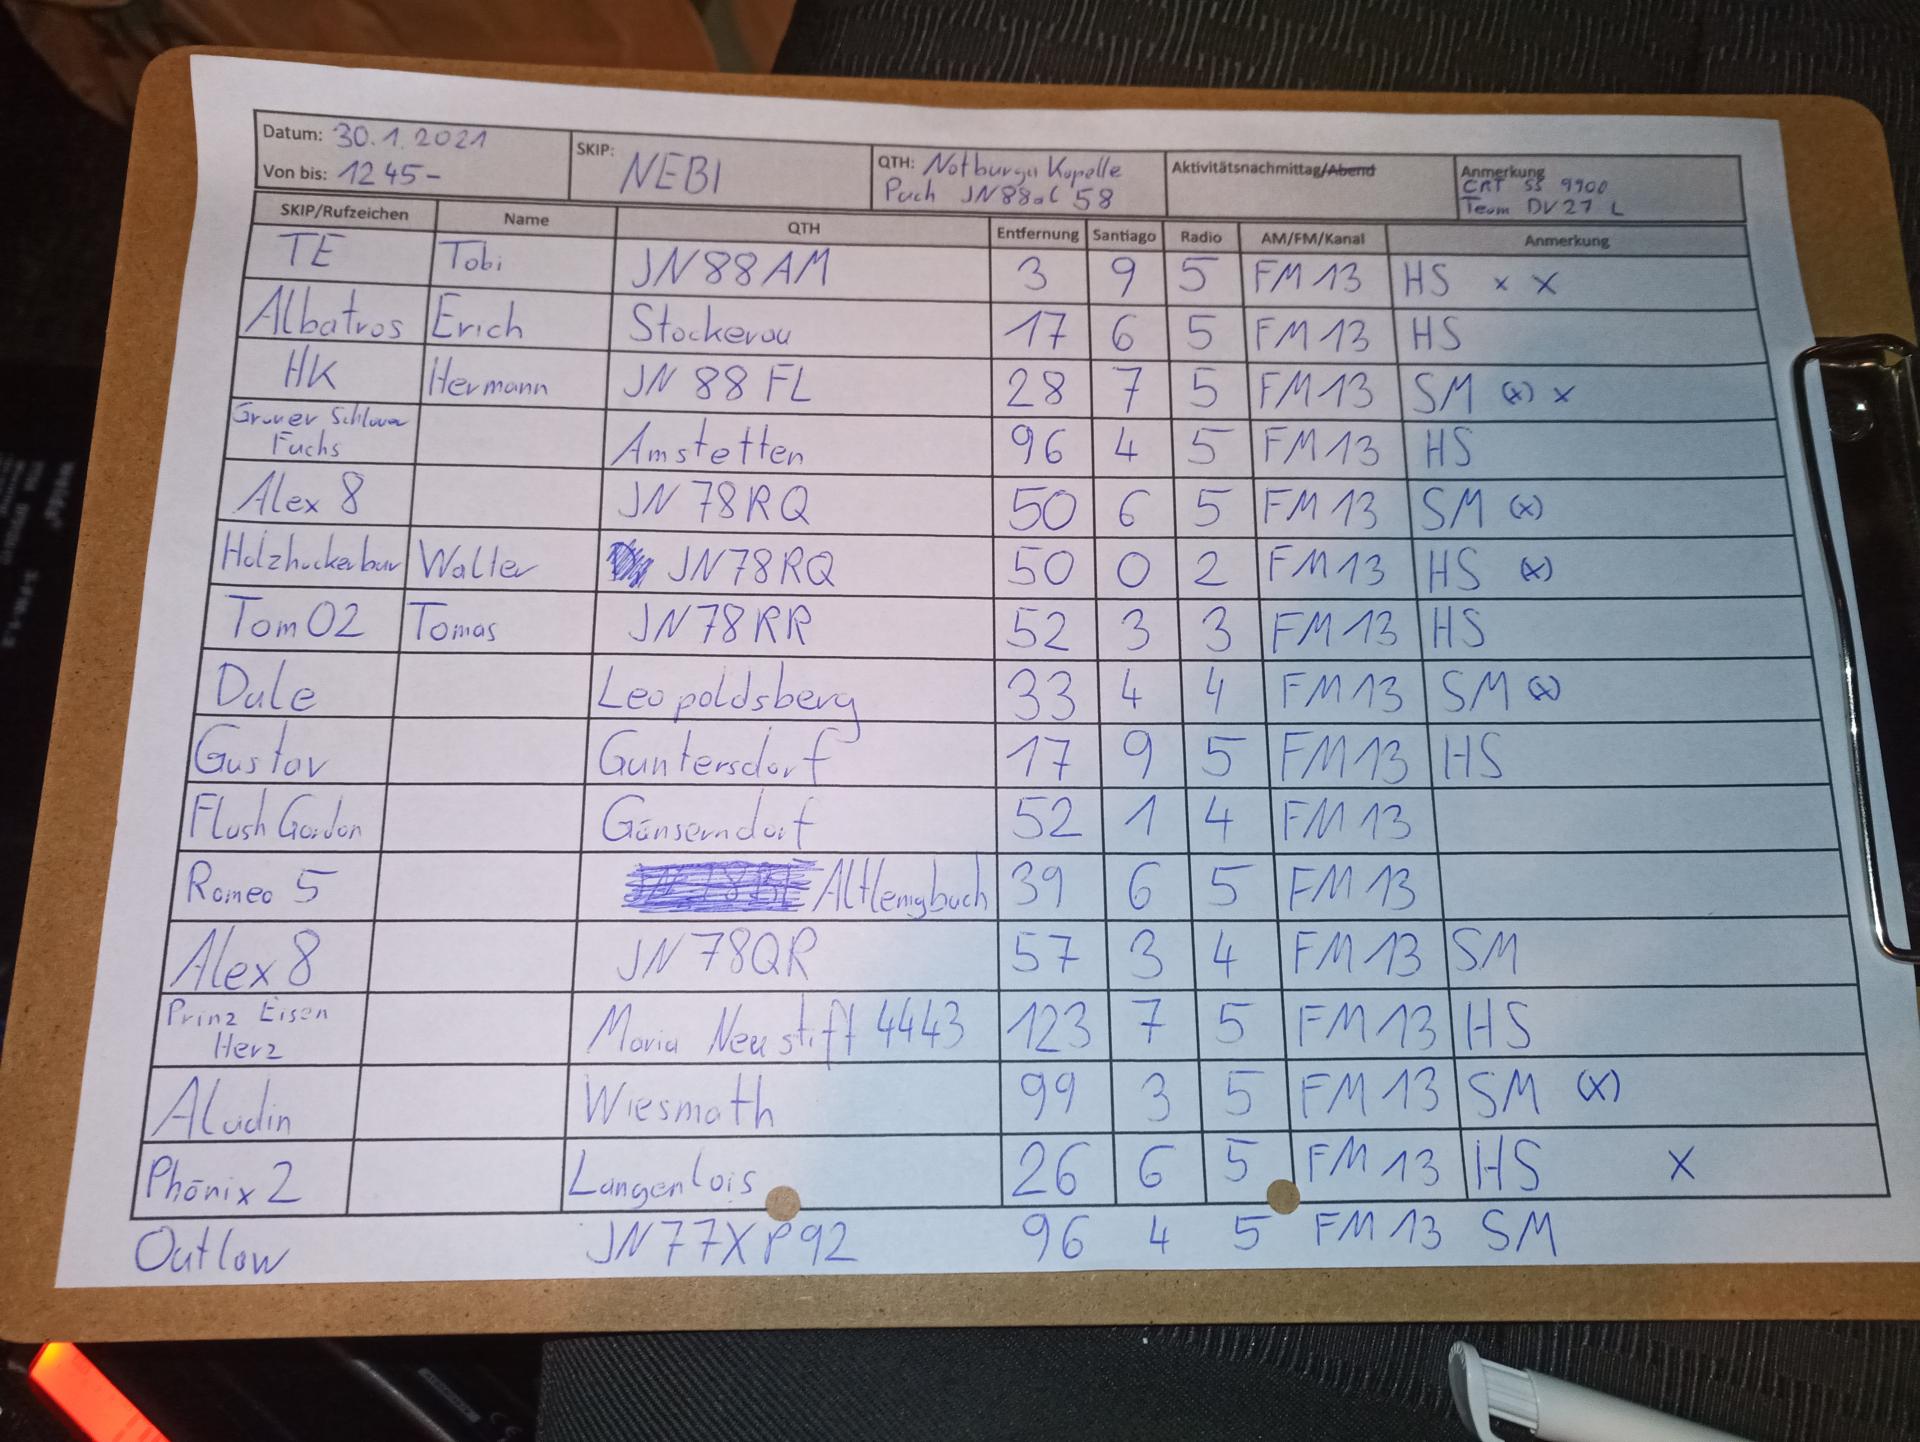 Datum: 30.1.2021
Von bis: 1245-
SKIP: NEBI
QTH: Notburga Kapelle
Puch JN88aL 58
Aktivitätsnachmittag/Abend
Anmerkung
CRT SS 9900
Team DV27 L
SKIP/Rufzeichen Name QTH Entfernung Santiago Radio AM/FM/Kanal Anmerkung
TE Tobi JN88AM 3 9 5 FM 13 HS x x
Albatros Erich Stockerau 17 6 5 FM 13 HS
HK Hermann JN 88 FL 28 7 5 FM 13 SM (x) x
Grauer Schlauer
Fuchs Amstetten 96 4 5 FM 13 HS
Alex 8 JN 78RQ 50 6 5 FM 13 SM (x)
Holzhackerbur Walter JN78RQ 50 0 2 FM 13 HS (x)
Tom02 Tomas JN78RR 52 3 3 FM 13 HS
Dale Leopoldsberg 33 4 4 FM 13 SM (x)
Gustav Guntersdorf 17 9 5 FM 13 HS
Flash Gordon Gänserndorf 52 1 4 FM 13
Romeo 5 Altlengbach 39 6 5 FM 13
Alex 8 JN 78QR 57 3 4 FM 13 SM
Prinz Eisen
Herz Maria Neustift 4443 123 7 5 FM 13 HS
Aladin Wiesmath 99 3 5 FM 13 SM (x)
Phönix 2 Langenlois 26 6 5 FM 13 HS X
Outlaw JN77XP92 96 4 5 FM 13 SM